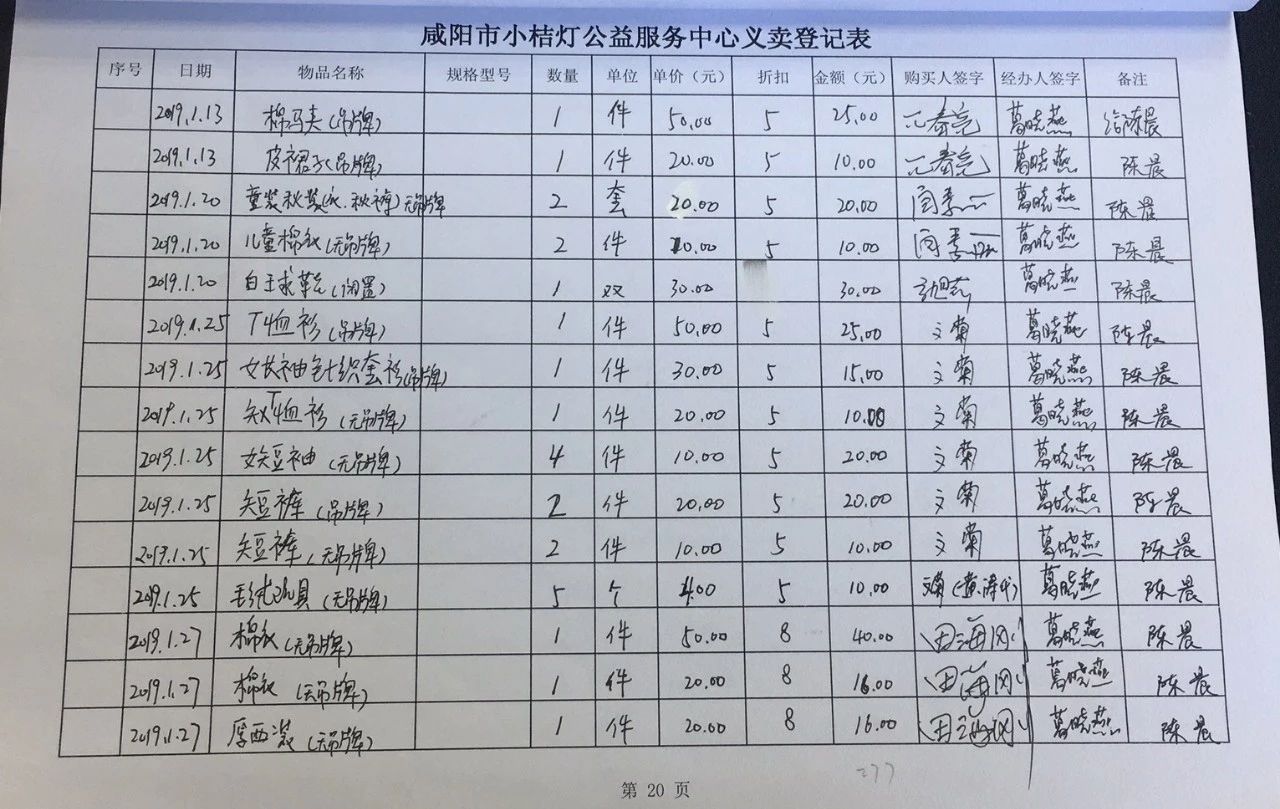 咸阳市小桔灯公益服务中心义卖登记表
序号 日期 物品名称 规格型号 数量 单位 单价（元） 折扣 金额（元） 购买人签字 经办人签字 备注
2019.1.13 棉马夹(吊牌) 1 件 50.00 5 25.00 葛晓燕 陈晨
2019.1.13 皮裙子(吊牌) 1 件 20.00 5 10.00 葛晓燕 陈晨
2019.1.20 童装秋装(衣.秋裤)无吊牌 2 套 20.00 5 20.00 葛晓燕 陈晨
2019.1.20 儿童棉衣(无吊牌) 2 件 10.00 5 10.00 葛晓燕 陈晨
2019.1.20 (闲置) 1 双 30.00 30.00 葛晓燕 陈晨
2019.1.25 T恤衫(吊牌) 1 件 50.00 5 25.00 文菊 葛晓燕 陈晨
2019.1.25 女长袖针织套衫(吊牌) 1 件 30.00 5 15.00 文菊 葛晓燕 陈晨
2019.1.25 T恤衫(无吊牌) 1 件 20.00 5 10.00 文菊 葛晓燕 陈晨
2019.1.25 女短袖(无吊牌) 4 件 10.00 5 20.00 文菊 葛晓燕 陈晨
2019.1.25 短裤(吊牌) 2 件 20.00 5 20.00 文菊 葛晓燕 陈晨
2019.1.25 短裤(无吊牌) 2 件 10.00 5 10.00 文菊 葛晓燕 陈晨
2019.1.25 毛绒玩具(无吊牌) 5 个 4.00 5 10.00 文菊 葛晓燕 陈晨
2019.1.27 棉衣(无吊牌) 1 件 50.00 8 40.00 田海刚 葛晓燕 陈晨
2019.1.27 棉衣(无吊牌) 1 件 20.00 8 16.00 田海刚 葛晓燕 陈晨
2019.1.27 厚西装(无吊牌) 1 件 20.00 8 16.00 田海刚 葛晓燕 陈晨
277
第 20 页